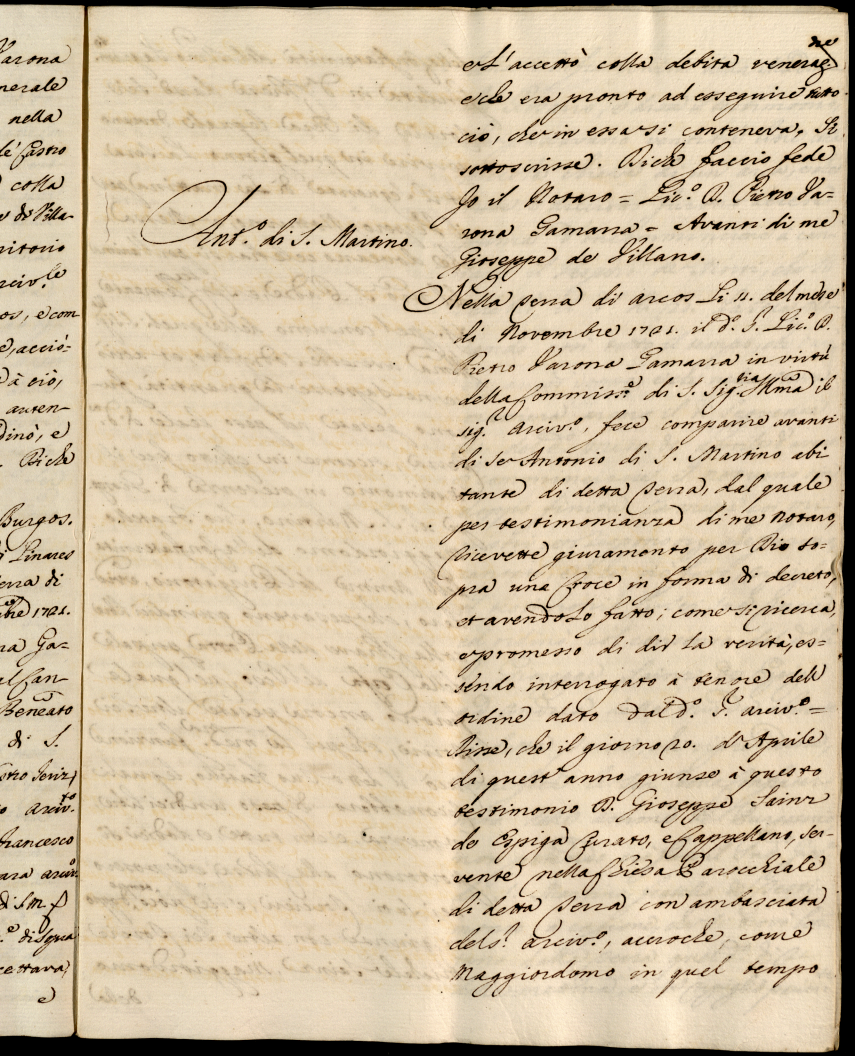 Varona
nerale
nella
de' Castro
colla
di Villa-
ritorio
arciv.le
os, e com
e, acció-
à ciò,
auten-
dinò, e
Diche
Burgos.
Linares
erra di
bre 1721.
na Ga-
al Can-
Beneato
di S.
arciv.to
francesco
ara arciv.o
di S.M.
cettava,
e
ne
e L'accettò colla debita veneraz
e che era pronto ad esseguire tutto
ciò, che in essa si conteneva, Si
sottoscrisse. Diche faccio fede
Jo il Notaro = Lic.o D. Pietro Va=
rona Gamarra = Avanti di me
Gioseppe de Villano.
Ant.o di S. Martino.
Nella serra di arcos Li 11. del mese
di Novembre 1721. il d.o S. Lic.o D.
Pietro Varona Gamarra in virtù
della Commiss.e di S. Sig.ria Illma il
sig.r Arciv.o, fece comparire avanti
di se Antonio di S. Martino abi
tante di detta serra, dal quale
per testimonianza di me Notaro,
ricevette giuramento per Dio so=
pra una Croce in forma di decreto,
et avendolo fatto, come si ricerca,
e promesso di dir la verità, es=
sendo interrogato à tenore dell
ordine dato dal d.o S. arciv.o =
Disse, che il giorno 20. d'Aprile
di quest' anno giunse à questo
testimonio D. Gioseppe Sainz
de Espiga Curato, e Cappellano, ser-
vente nella Chiesa Parocchiale
di detta serra con ambasciata
del s.r arciv.o, accioche, come
Maggiordomo in quel tempo